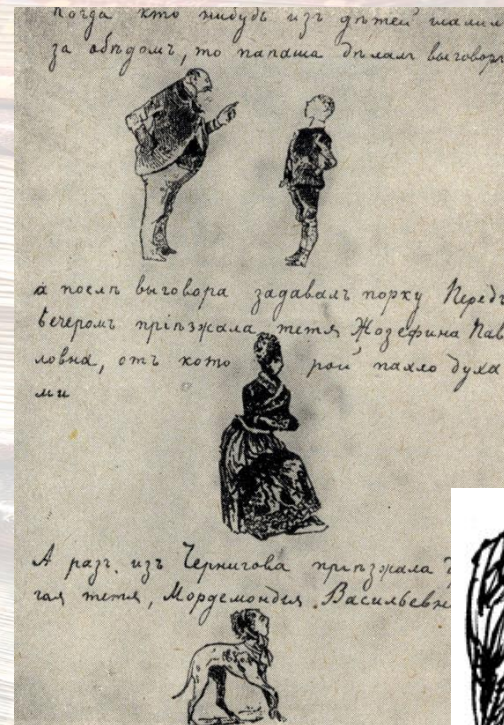 Когда кто нибудь изъ дѣтей шалилъ
за обѣдомъ, то папаша дѣлалъ выговоръ
а послѣ выговора задавалъ порку Передъ
вечеромъ пріѣзжала тетя Жозефина Пав
ловна, отъ кото рой пахло духа
ми
А разъ. изъ Чернигова пріѣзжала
гая тетя, Мордемондія Васильевн